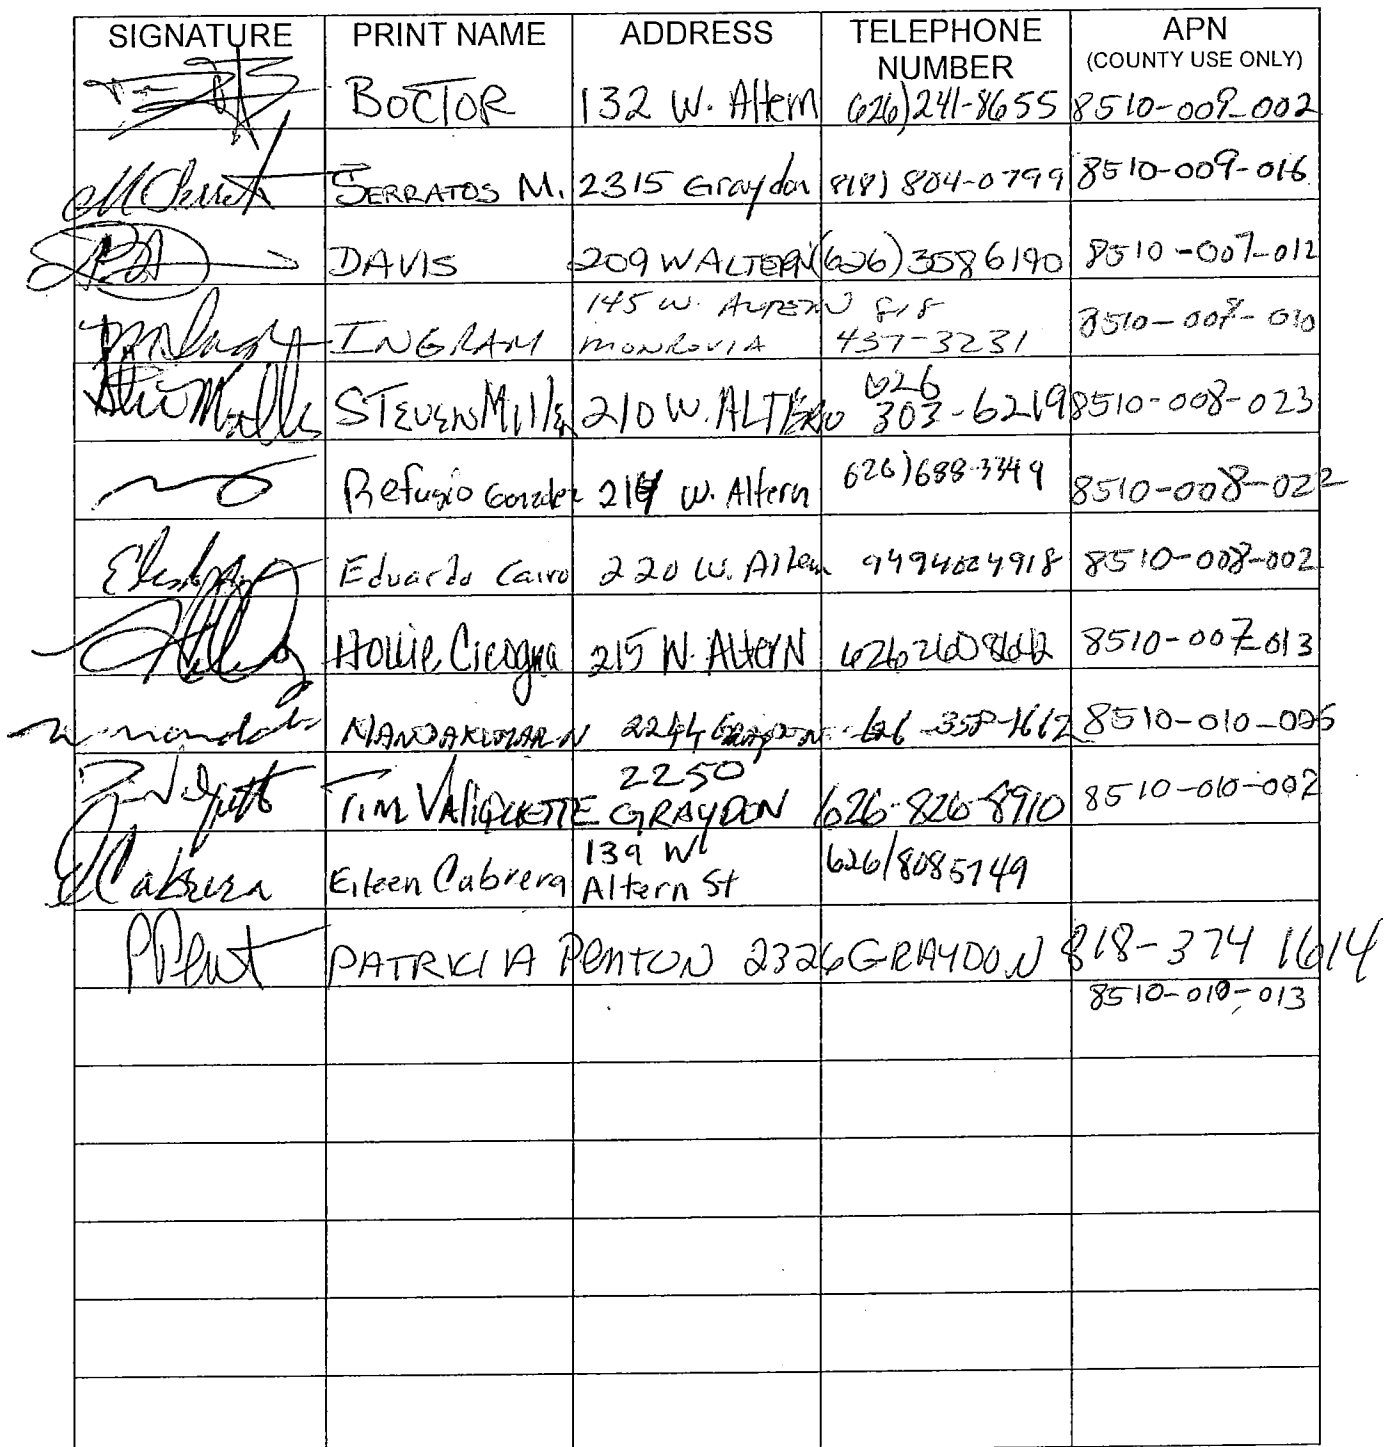 SIGNATURE PRINT NAME ADDRESS TELEPHONE NUMBER APN (COUNTY USE ONLY)
BOCTOR 132 W. Altern (626)241-8655 8510-009-002
SERRATOS M. 2315 Graydon 818) 804-0799 8510-009-016
DAVIS 209 W ALTERN (626)3586190 8510-007-012
INGRAM 145 W. ALTERN MONROVIA 818 437-3231 8510-008-010
STEVEN Miller 210 W. ALTERN 626 303-6219 8510-008-023
Refugio Gonzalez W. Altern 626)688-3349 8510-008-022
Eduardo Cairo 220 W. Altern 9494024918 8510-008-002
Hollie Cicogna 215 W. Altern 8510-007-013
NANDAKUMAR N 2244 GRAYDON 626-358-1662 8510-010-005
TIM VALIQUETTE 2250 GRAYDON 626-826-8910 8510-010-002
E Cabrera Eileen Cabrera 139 W Altern St 626/8085749
PATRICIA PENTON 2326 GRAYDON 818-374 1614
8510-010-013